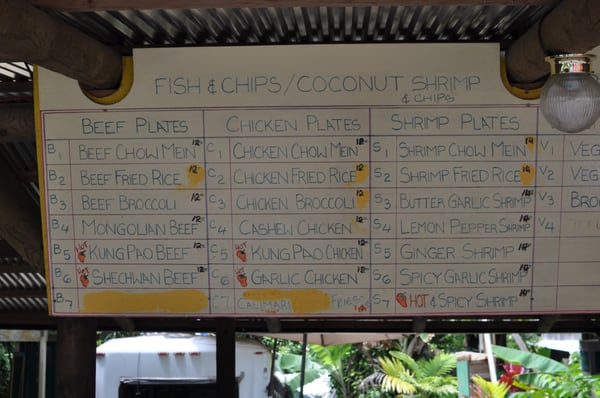 FISH & CHIPS/COCONUT SHRIMP
& CHIPS
BEEF PLATES CHICKEN PLATES SHRIMP PLATES
B1 BEEF CHOW MEIN 12 C1 CHICKEN CHOW MEIN 12 S1 SHRIMP CHOW MEIN 14 V1 VEG
B2 BEEF FRIED RICE 12 C2 CHICKEN FRIED RICE 12 S2 SHRIMP FRIED RICE 14 V2 VEG
B3 BEEF BROCCOLI 12 C3 CHICKEN BROCCOLI 12 S3 BUTTER GARLIC SHRIMP 14 V3 BRO
B4 MONGOLIAN BEEF 12 C4 CASHEW CHICKEN 12 S4 LEMON PEPPER SHRIMP 14 V4
B5 HOT KUNG PAO BEEF 12 C5 HOT KUNG PAO CHICKEN 12 S5 GINGER SHRIMP 14
B6 HOT SHECHWAN BEEF 12 C6 HOT GARLIC CHICKEN 12 S6 SPICY GARLIC SHRIMP 14
B7 C7 CALAMARI FRIES S7 HOT & SPICY SHRIMP 14